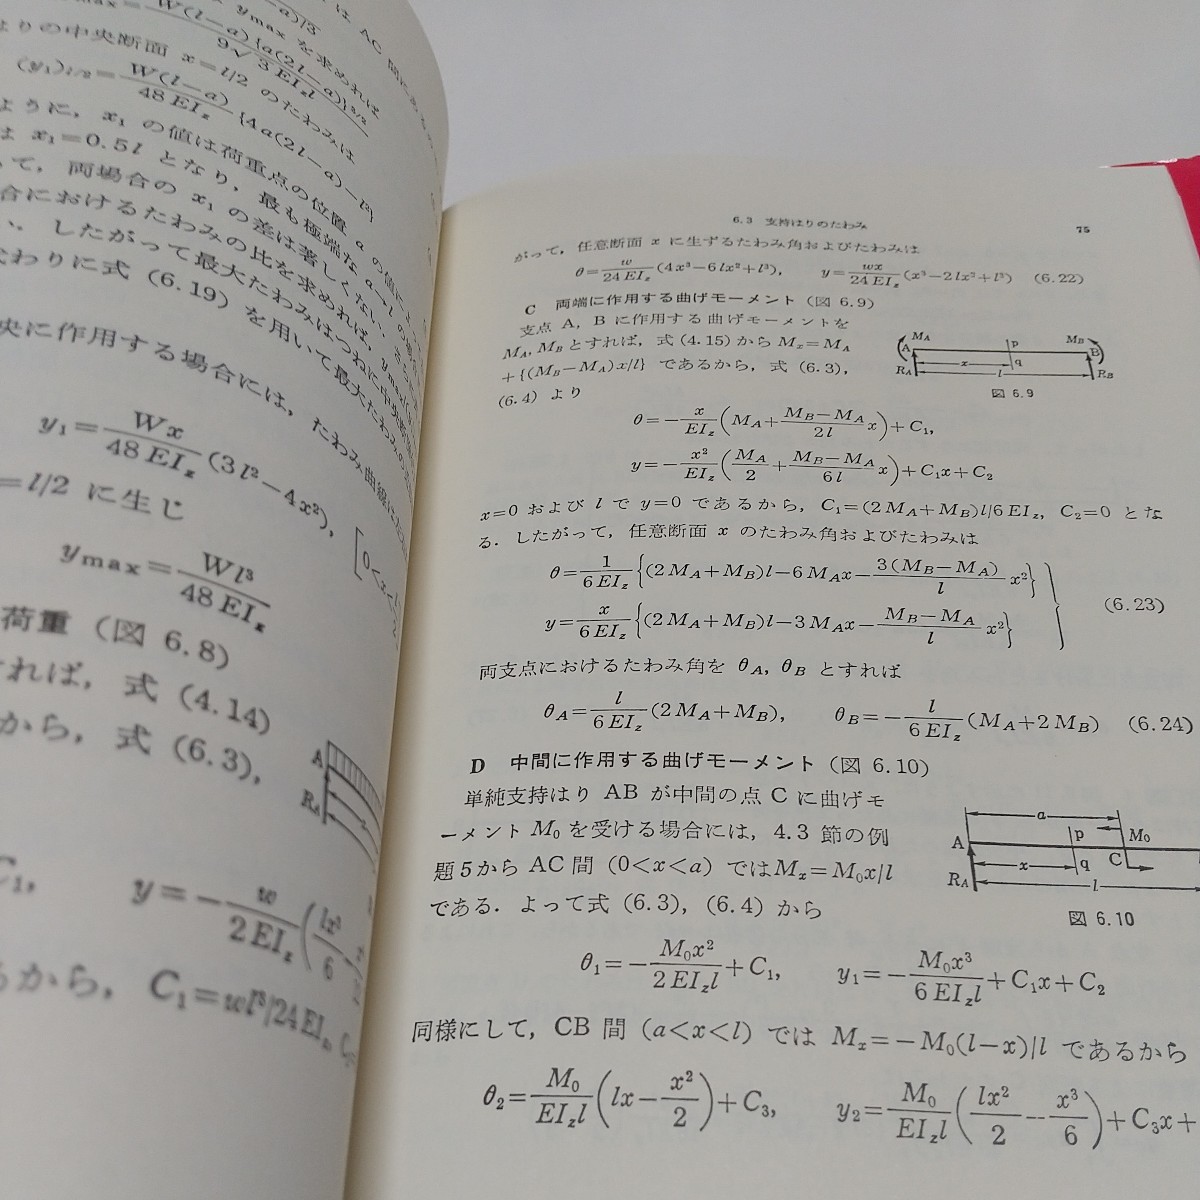 は AC
y max を求めれば
はりの中央断面 x=l/2 のたわみは
(y₁)l/2=W(l-a)/48EI_z {4a(2l-a)-l²}
ように, x₁ の値は荷重点の位置 a の値に
は x₁=0.5l となり, 最も極端な a→l の
て, 両場合の x₁ の差は著しくない.
合におけるたわみの比を求めれば, y max
したがって最大たわみはつねに中央
わりに式 (6.19) を用いて最大たわみ
央に作用する場合には, たわみ曲線
y₁=Wx/48EI_z (3l²-4x²),
=l/2 に生じ
y max=Wl³/48EI_z
荷重 (図 6.8)
れば, 式 (4.14)
から, 式 (6.3),
A
R_A
C₁,
y=-w/2EI_z (lx³/6
るから, C₁=wl³/24EI_z,
6.3 支持はりのたわみ 75
がって, 任意断面 x に生ずるたわみ角およびたわみは
θ=w/24EI_z (4x³-6lx²+l³), y=wx/24EI_z (x³-2lx²+l³) (6.22)
C 両端に作用する曲げモーメント (図 6.9)
支点 A, B に作用する曲げモーメントを
M_A, M_B とすれば, 式 (4.15) から M_x=M_A
+{(M_B-M_A)x/l} であるから, 式 (6.3),
(6.4) より
M_A p M_B
A B
x q
R_A l R_B
図 6.9
θ=-x/EI_z (M_A+(M_B-M_A)/2l x)+C₁,
y=-x²/EI_z (M_A/2+(M_B-M_A)/6l x)+C₁x+C₂
x=0 および l で y=0 であるから, C₁=(2M_A+M_B)l/6EI_z, C₂=0 とな
る. したがって, 任意断面 x のたわみ角およびたわみは
θ=1/6EI_z {(2M_A+M_B)l-6M_Ax-3(M_B-M_A)/l x²}
y=x/6EI_z {(2M_A+M_B)l-3M_Ax-(M_B-M_A)/l x²} (6.23)
両支点におけるたわみ角を θ_A, θ_B とすれば
θ_A=l/6EI_z (2M_A+M_B), θ_B=-l/6EI_z (M_A+2M_B) (6.24)
D 中間に作用する曲げモーメント (図 6.10)
単純支持はり AB が中間の点 C に曲げモ
ーメント M₀ を受ける場合には, 4.3 節の例
題5から AC 間 (0<x<a) では M_x=M₀x/l
である. よって式 (6.3), (6.4) から
a
A p M₀
x q C
R_A l
図 6.10
θ₁=-M₀x²/2EI_zl+C₁, y₁=-M₀x³/6EI_zl+C₁x+C₂
同様にして, CB 間 (a<x<l) では M_x=-M₀(l-x)/l であるから
θ₂=M₀/EI_zl (lx-x²/2)+C₃, y₂=M₀/EI_zl (lx²/2-x³/6)+C₃x+